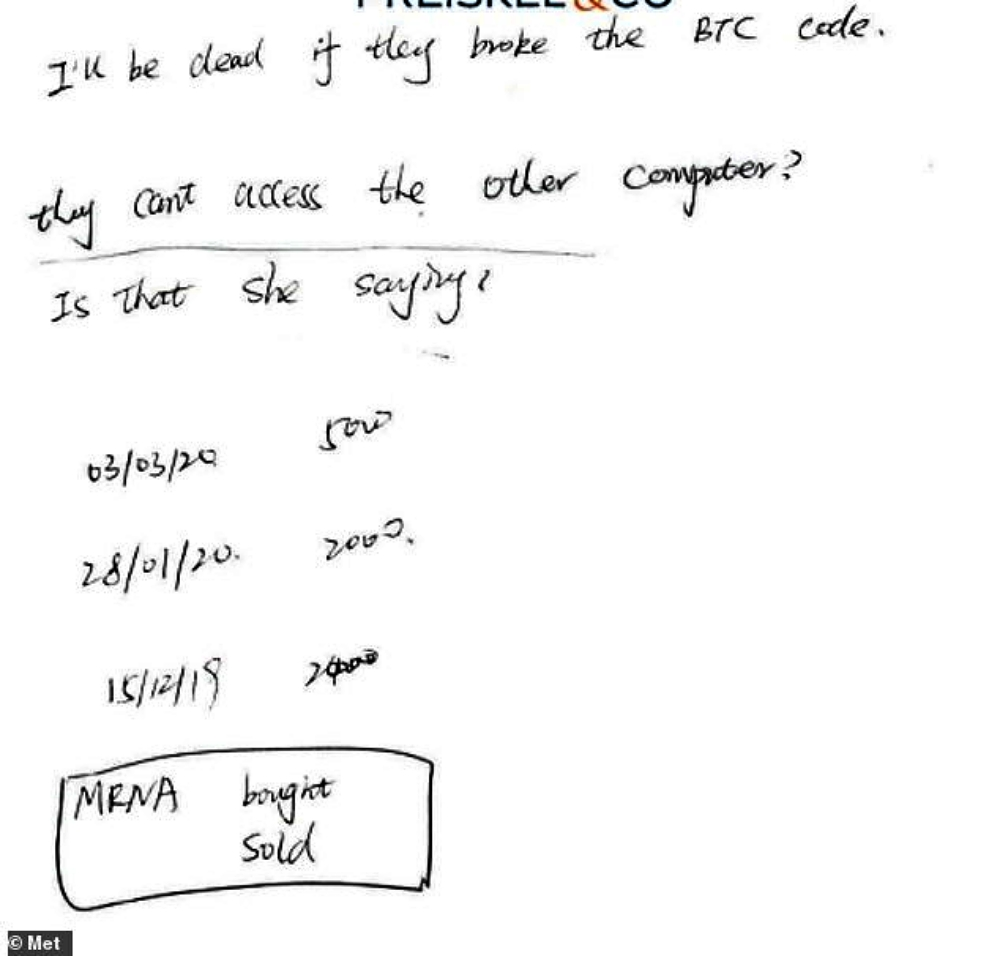 PREISKEL&CO
I'll be dead if they broke the BTC code.
they cant access the other computer?
Is that she saying?
03/03/20 500
28/01/20. 2000.
15/12/19
MRNA bought
sold
© Met